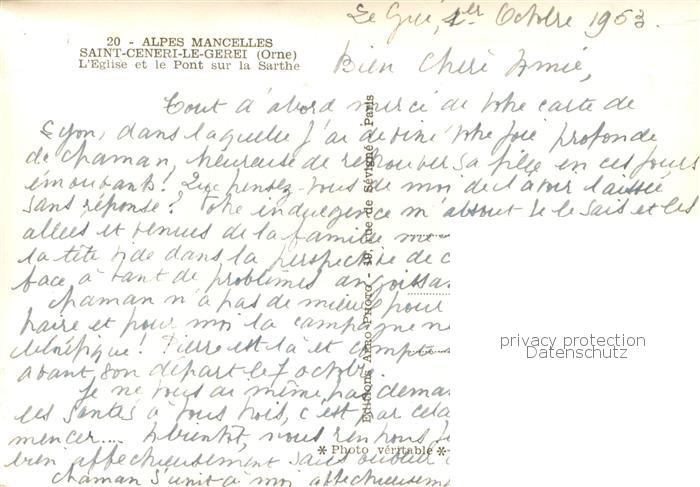 Le Gué, 1er Octobre 1963.
20 - ALPES MANCELLES
SAINT-CENERI-LE-GEREI (Orne)
L'Eglise et le Pont sur la Sarthe
Bien Chère Amie,
Tout d'abord merci de votre carte de
Lyon, dans laquelle j'ai deviné votre joie profonde
de chaman, heureuse de retrouver sa fille en ces jours
émouvants! Que pensez-vous de moi de l'avoir laissée
sans réponse? Votre indulgence m'absout je le sais et les
allées et venues de la famille me
la tête vide dans la perspective de c
face à tant de problèmes angoissan
Chaman n'a pas de mieux pour
faire et pour moi la campagne n
bénéfique! Pierre est là et compte
avant son départ le 7 octobre.
Je ne vous ai même pas deman
les santés à tous trois, c'est par cela
mencer.... bientôt, nous
bien affectueusement sans oublier
Chaman s'unit à moi affectueusem
Editions Arro-Photo - 19, Rue de Sévigné - Paris
* Photo véritable *
privacy protection
Datenschutz